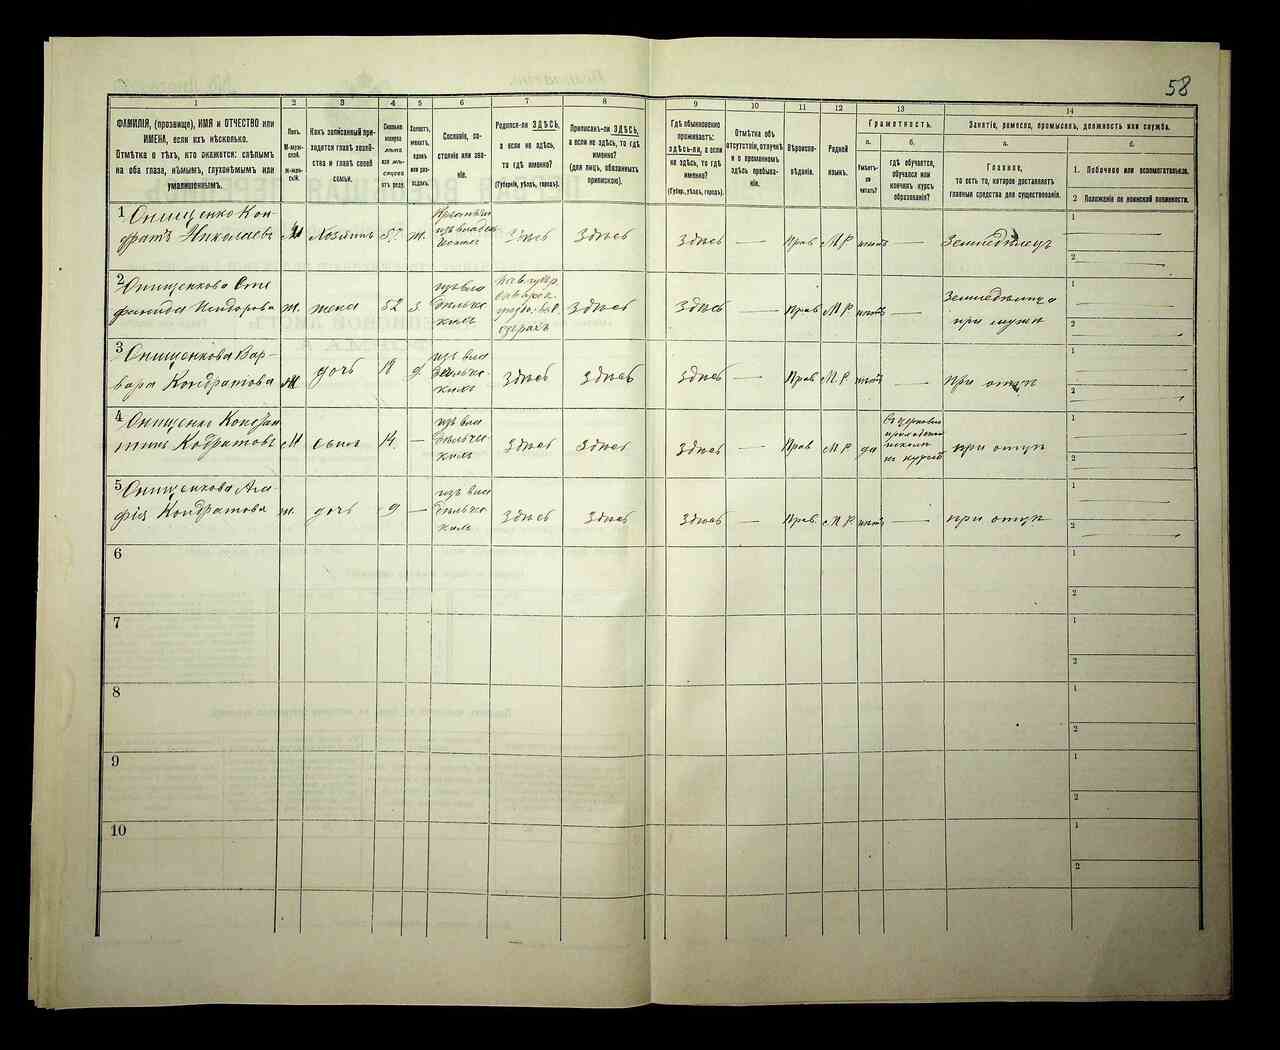 58
1 2 3 4 5 6 7 8 9 10 11 12 13 14
ФАМИЛІЯ, (прозвище), ИМЯ и ОТЧЕСТВО или
ИМЕНА, если ихъ нѣсколько.
Отмѣтка о тѣхъ, кто окажется: слѣпымъ
на оба глаза, нѣмымъ, глухонѣмымъ или
умалишеннымъ.
Полъ.
М-муж-
ской.
Ж-жен-
скій.
Какъ записанный при-
ходится главѣ хозяй-
ства и главѣ своей
семьи.
Сколько
минуло
лѣтъ
или мѣ-
сяцевъ
отъ роду.
Холостъ,
женатъ,
вдовъ
или раз-
веденъ.
Сословіе, со-
стояніе или зва-
ніе.
Родился-ли ЗДѢСЬ,
а если не здѣсь,
то гдѣ именно?
(Губернія, уѣздъ, городъ).
Приписанъ-ли ЗДѢСЬ,
а если не здѣсь, то гдѣ
именно?
(для лицъ, обязанныхъ
припискою).
Гдѣ обыкновенно
проживаетъ:
ЗДѢСЬ-ЛИ, а если
не здѣсь, то гдѣ
именно?
(Губер., уѣздъ, городъ).
Отмѣтка объ
отсутствіи, отлучкѣ
и о временномъ
здѣсь пребыва-
ніи.
Вѣроиспо-
вѣданіе.
Родной
языкъ.
Грамотность.
а. б.
Умѣетъ-
ли
читать?
гдѣ обучается,
обучался или
кончилъ курсъ
образованія?
Занятіе, ремесло, промыселъ, должность или служба.
а. б.
Главное,
то есть то, которое доставляетъ
главныя средства для существованія.
1. Побочное или вспомогательное.
2 Положеніе по воинской повинности.
1 Онищенко Кон-
дратъ Николаевъ М Хозяинъ 57 ж. Здѣсь Здѣсь Здѣсь — Прав М.Р. нѣтъ — Земледѣлецъ
1
2
2 Онищенкова Сте
фанида Исидорова ж. жена 52 з. изъ вла
дѣльче
скихъ Здѣсь Здѣсь — Прав М.Р. нѣтъ — Земледѣлица
при мужѣ
1
2
3 Онищенкова Вар-
вара Кондратова ж дочь 18 д изъ вла
дѣльче-
скихъ Здѣсь Здѣсь Здѣсь — Прав М.Р. нѣтъ — при отцѣ
1
2
4 Онищенко Констан
тинъ Кодратовъ М Сынъ 14 — изъ вла
дѣльче-
скихъ Здѣсь Здѣсь Здѣсь — Прав М.Р. да Въ церковно
приходской
школѣ при отцѣ
1
2
5 Онищенкова Ага-
фія Кондратова ж. дочь 9 — изъ вла
дѣльче
скихъ Здѣсь Здѣсь Здѣсь — Прав. М.Р. нѣтъ — при отцѣ
1
2
6
1
2
7
1
2
8
1
2
9
1
2
10
1
2